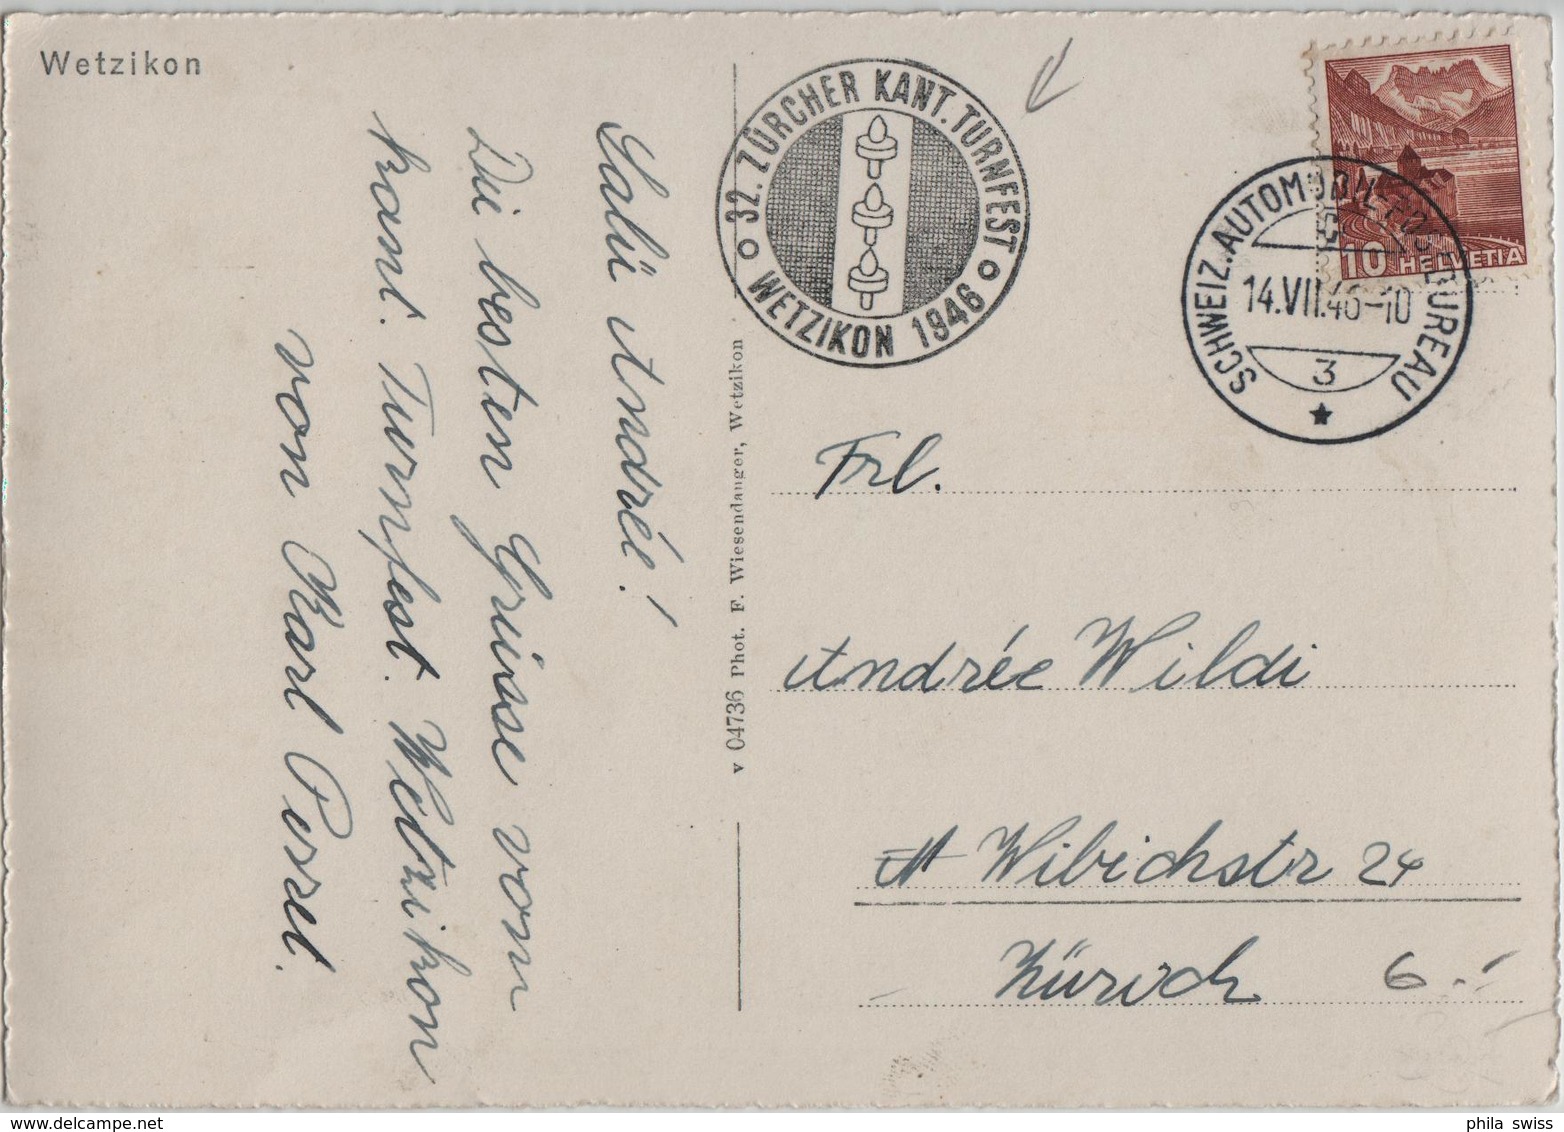 Wetzikon
32. ZÜRCHER KANT. TURNFEST
WETZIKON 1946
SCHWEIZ. AUTOMOBIL-POSTBUREAU
14.VII.46-10
3
10 HELVETIA
Salü Andrée!
Die besten Grüsse vom
kant. Turnfest. Wetzikon
von Karl
v 04736 Phot. F. Wiesendanger, Wetzikon
Frl.
Andrée Wildi
Wibichstr 24
Zürich
6.-
phila swiss